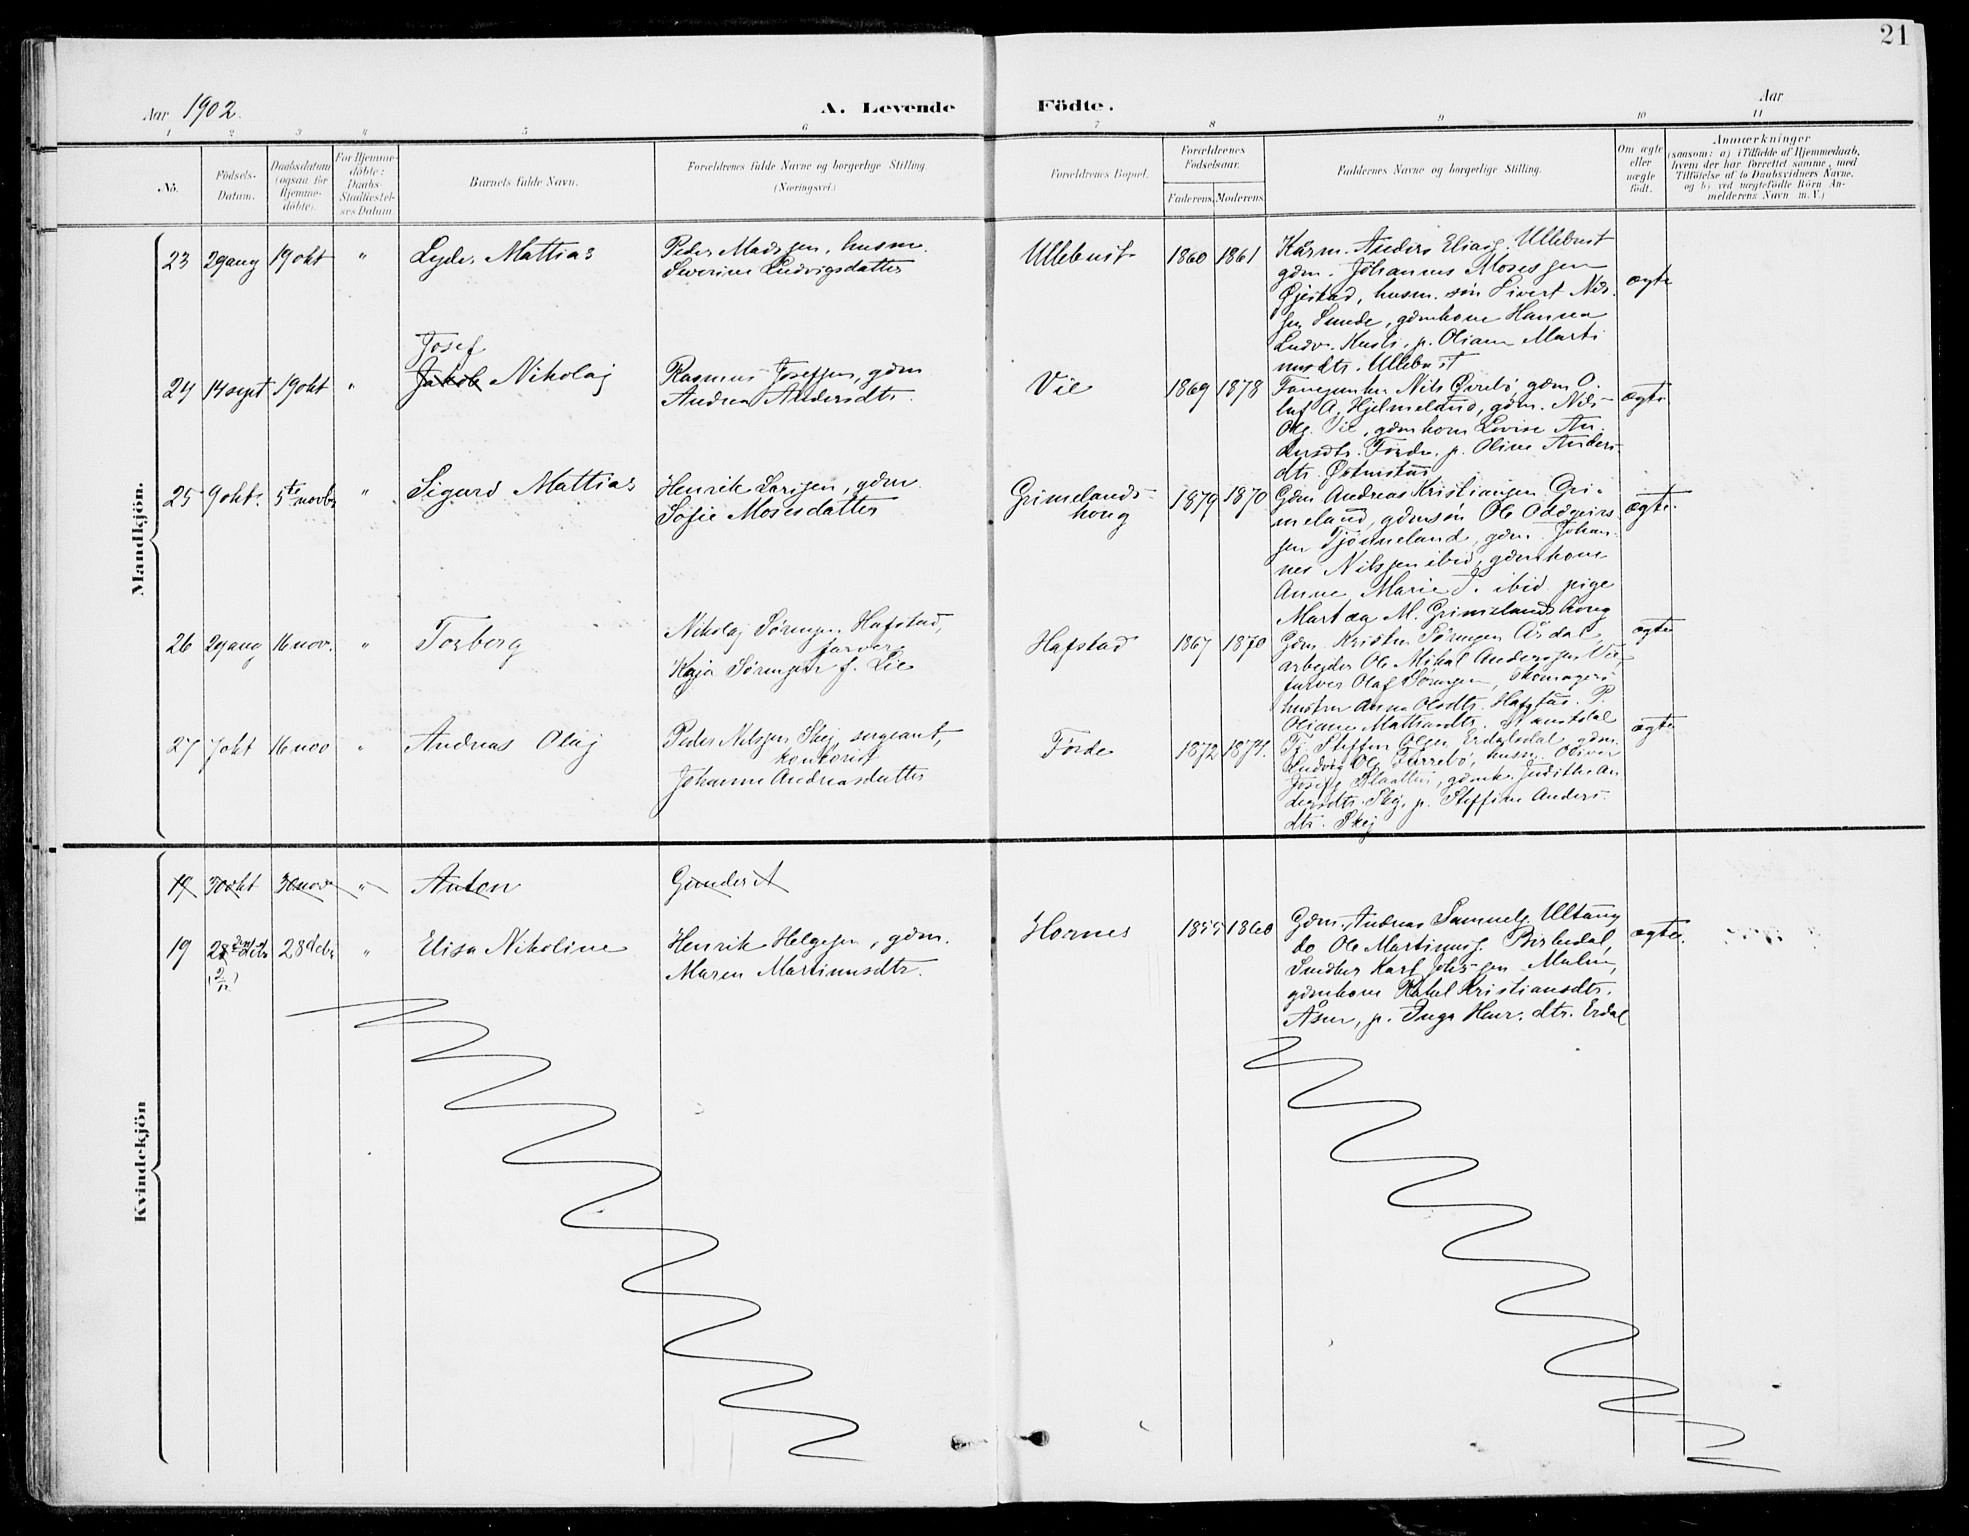 21
Aar 1902.
A. Levende Födte.
Aar
1 2 3 4 5 6 7 8 9 10 11
No.
Födsels-Datum.
Daabsdatum (ogsaa for Hjemme-döbte).
For Hjemme-döbte: Daabs-Stadfæstel-ses Datum
Barnets fulde Navn.
Forældrenes fulde Navne og borgerlige Stilling. (Næringsvei.)
Forældrenes Bopæl.
Forældrenes Födselsaar.
Faderens. Moderens.
Faddernes Navne og borgerlige Stilling.
Om ægte eller uægte födt.
Anmærkninger
(saasom: a) i Tilfælde af Hjemmedaab,
hvem der har forrettet samme, med
Tilföielse af to Daabsvidners Navne,
og b) ved uægtefödte Börn An-
melderens Navn m. V.)
Mandkjön.
23 29 aug 19 okt " Lyder Mattias
Peder Madssen, husm.
Severine Ludvigsdatter
Ullebust 1860 1861
Kårm. Anders Eliass. Ullebust
gdm. Johannes Mosessen
Øjestad, husm. søn Sivert Nils-
sen Sunde, gdmkone Hanna
p. Oliane Marti
nusdtr. Ullebust
ægte
Josef
24 14 sept 19 okt " Jakob Nikolaj
Rasmus Josefsen, gdm
Andrea Andersdtr.
Vie 1869 1878
Nils Øvrebø, gdm O.
luf A. Hjelmeland, gdm. Nils
Ols. Vie, gdmkone Lovise An.
dersdtr. Førde, p. Oline Anders
dtr.
ægte
25 9 okt. 5te novbr " Sigurd Mattias
Henrik Larssen, gdm
Sofie Mosesdatter
Grimelands-
houg
1879 1870
Gdm Andreas Kristiansen Gri-
meland, gdmsøn Ole Oddgeirs
sen Tjønneland, gdm. Johan-
nes Nilssen ibid, gdmkone
Anne Marie J. ibid pige
Martha M. Grimelandshoug
ægte.
26 29 aug 16 nov. " Torberg
Nikolaj Sørensen Hafstad,
farver
Kaja Sørensen f. Lie
Hafstad 1867 1870
Gdm. Kristen Sørensen Årdal
arbejder Ole Mikal Anderssen Vie,
farver Olaf Sørensen, skomagers
hustru Anna Olsdtr. Hafstad. P.
Oliane
ægte
27 7 okt 16 nov " Andreas Olaj
Peder Nilssen Skej, sergeant,
kontorist
Johanne Andreasdatter
Førde 1872 1874.
Steffen Olsen Erdalsdal, gdm.
Ludvig Ols. Farsebø, husm. Oliver
Josefs. Slaatten, gdmk. Judithe An
dersdtr. Skej, p. Steffine Anders.
dtr. Skej
ægte
Kvindekjön
19 30 okt 30 nov " Anton
Gunder A
19 28 decbr " Elisa Nikoline
Henrik Helgesen, gdm.
Maren Martinusdtr.
Hornes 1855 1860
Gdm. Andreas Samuels. Ullång
do Ole Martinus. Birkedal,
Karl Malm,
gdmkone Rakel Kristiansdtr.
Åsen, p. Inga Henr. dtr. Erdal
ægte.